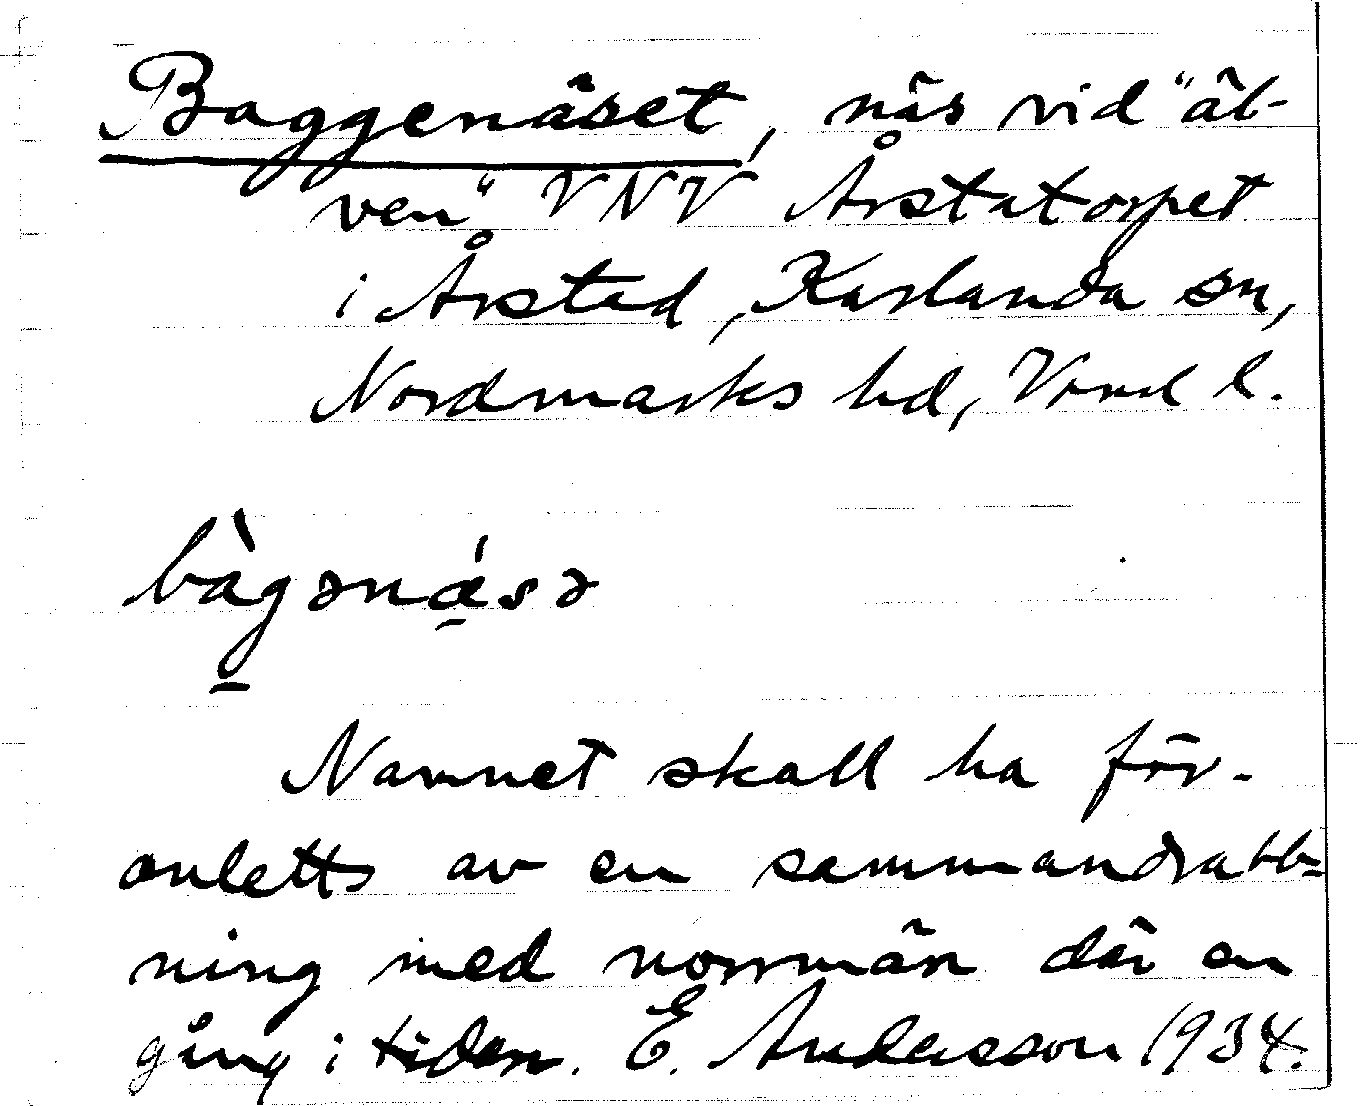 Baggenäset, näs vid "äl-
ven" VNV Årstatorpet
i Årstad, Karlanda sn,
Nordmarks hd, Vrml l.
bàgǝnǽsǝ
Namnet skall ha för-
anletts av en sammandrabb-
ning med norrmän där en
gång i tiden. E. Andersson 1934.